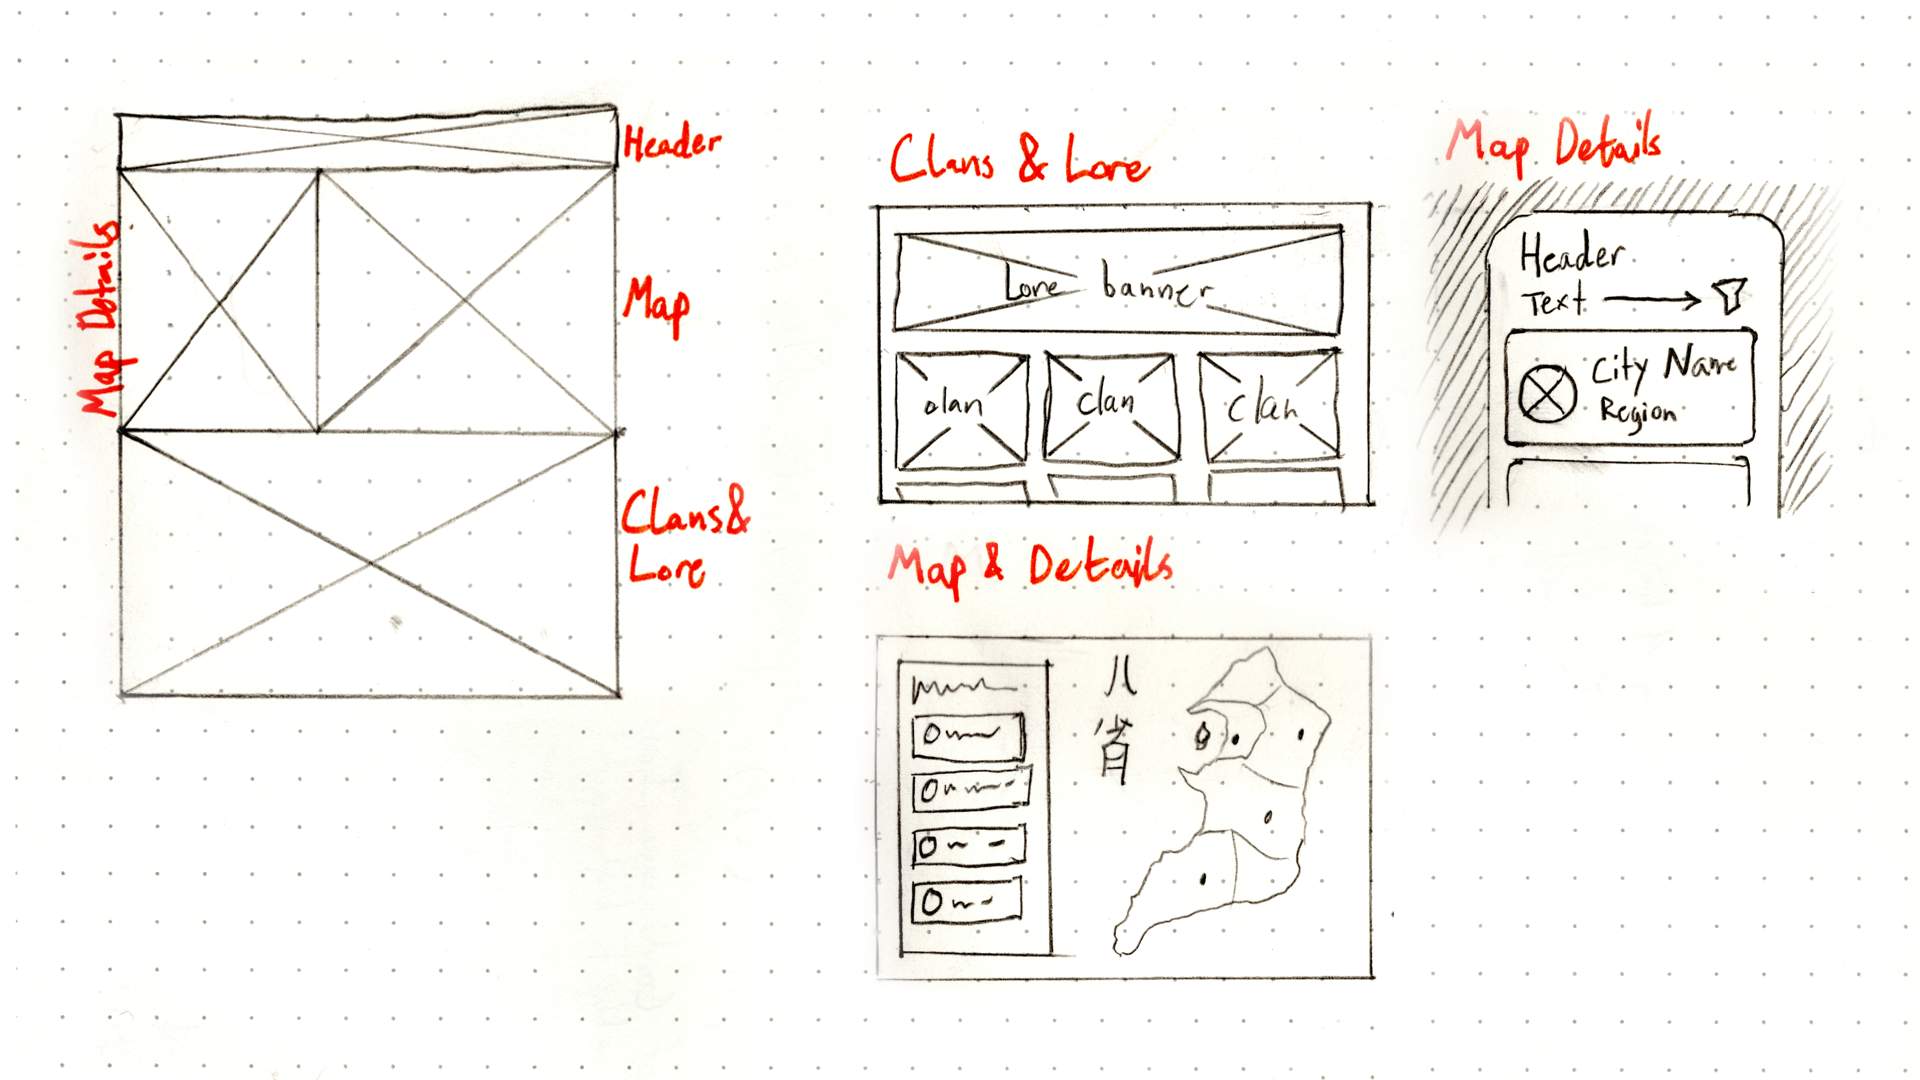 Header
Map Details
Map
Clans &
Lore
Clans & Lore
Lore banner
clan
clan
clan
Map Details
Header
Text
City Name
Region
Map & Details
八
省